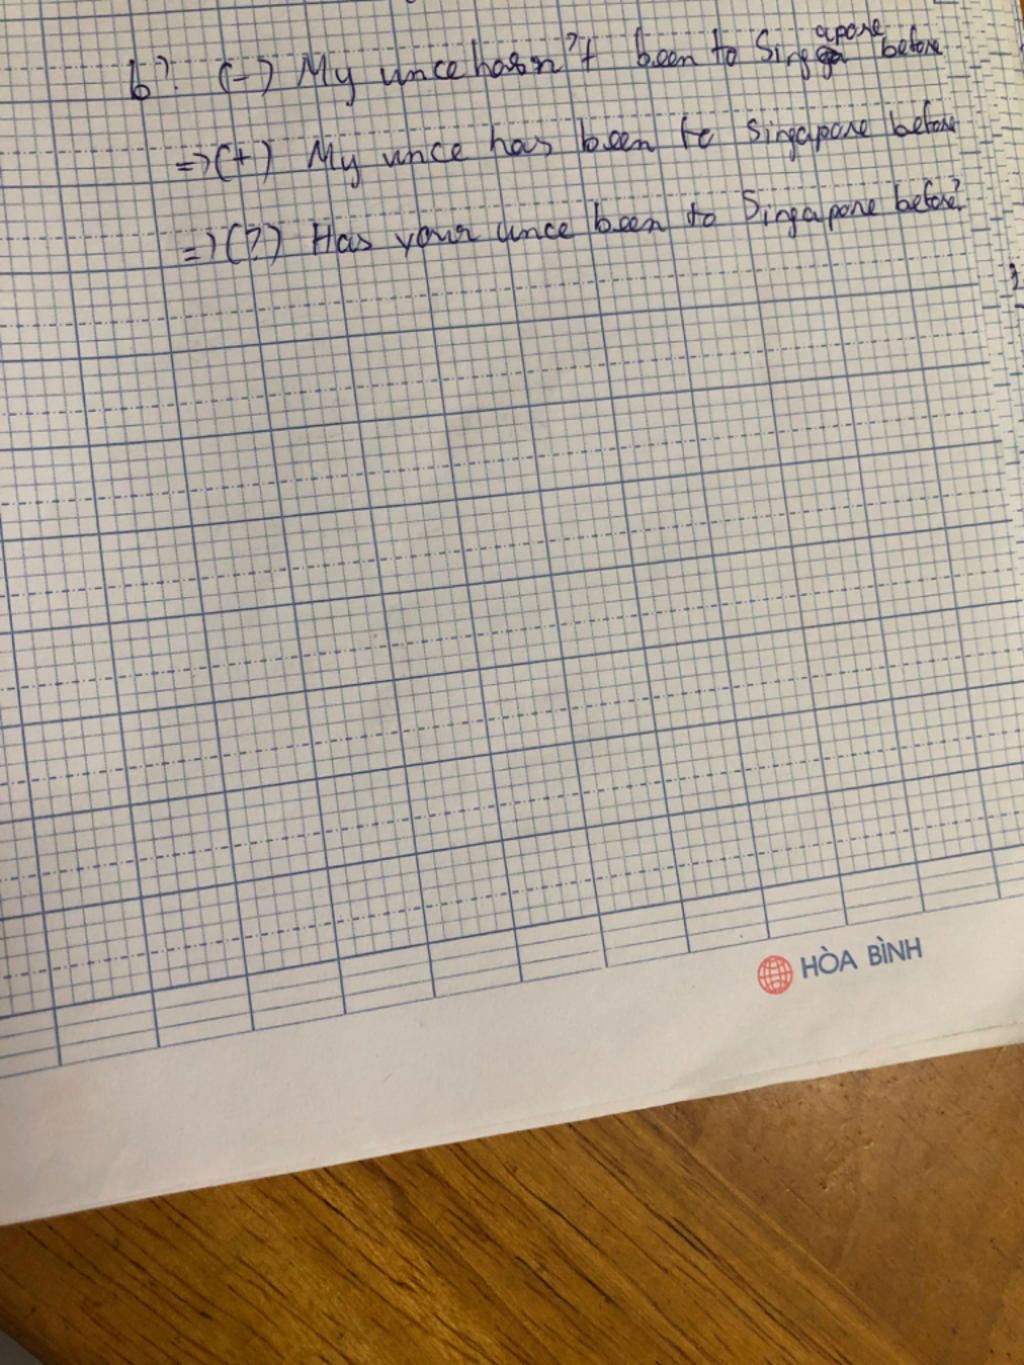 6? (-) My unce hasn't been to Singapore before
=>(+) My unce has been to Singapore before
=>(?) Has your unce been to Singapore before?
HÒA BÌNH